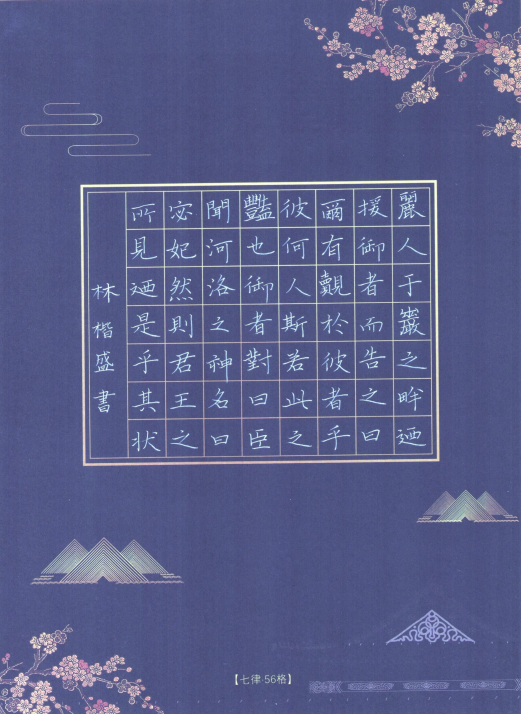 麗人于巖之畔迺
援御者而告之曰
爾有覿於彼者乎
彼何人斯若此之
豔也御者對曰臣
聞河洛之神名曰
宓妃然則君王之
所見迺是乎其状
林楷盛書
【七律·56格】